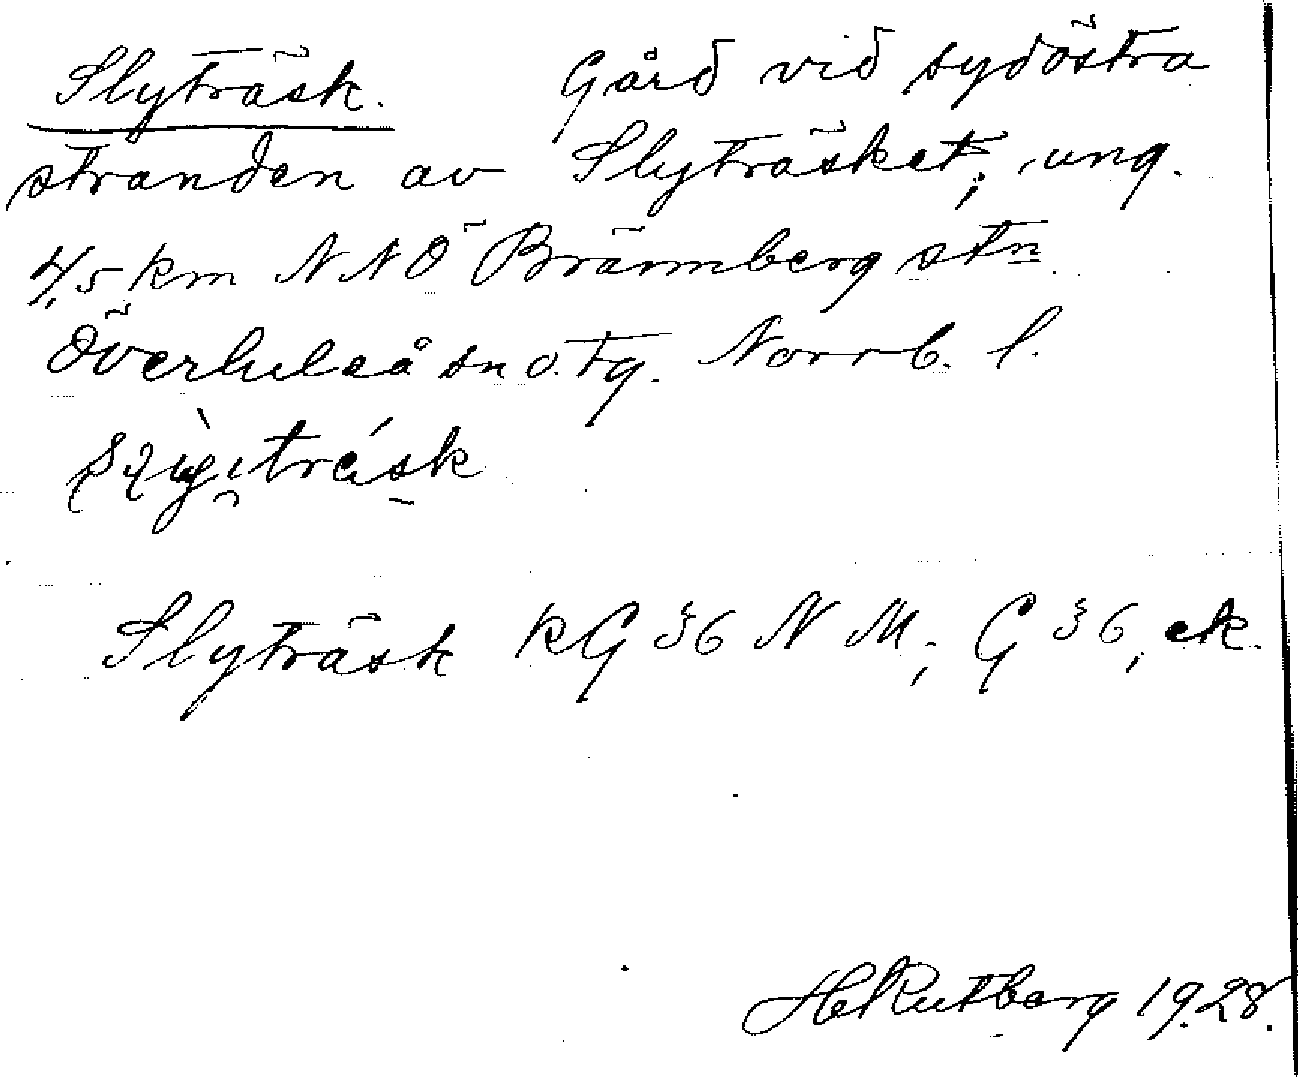 Slyträsk. Gård vid sydöstra
stranden av Slyträsket, ung.
4,5 km NNÖ Brännberg stn
Överluleå sn o. tg. Norrb. l.
Slyträsk kG 36 NM; G 36, ek.
H Rutberg 1928.